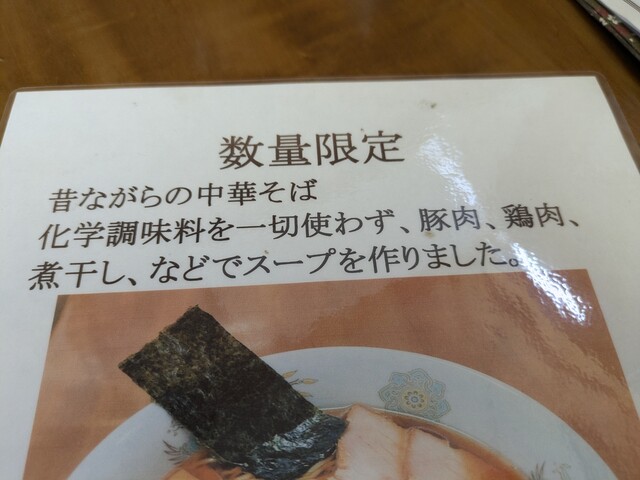 数量限定
昔ながらの中華そば
化学調味料を一切使わず、豚肉、鶏肉、
煮干し、などでスープを作りました。